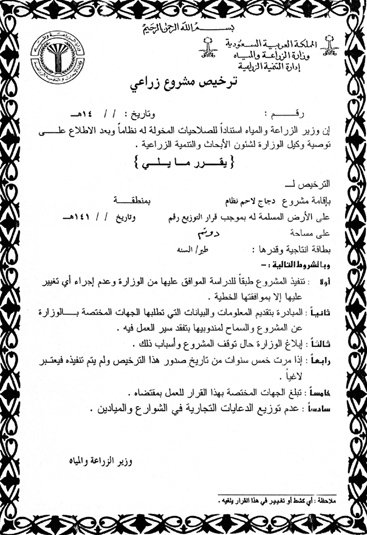 بسم الله الرحمن الرحيم
المملكة العربية السعودية
وزارة الزراعة والمياه
إدارة التنمية الزراعية
ترخيص مشروع زراعي
رقـــم : وتاريخ : / / ١٤هـ
إن وزير الزراعة والمياه استناداً للصلاحيات المخولة له نظاماً وبعد الاطلاع علـى
توصية وكيل الوزارة لشئون الأبحاث والتنمية الزراعية .
{ يقـرر مـا يـلـي }
الترخيص لــ
بإقامة مشروع دجاج لاحم نظام بمنطقـة
على الأرض المسلمة له بموجب قرار التوزيع رقم وتاريخ / / ١٤١هـ
على مساحة دونم
بطاقة انتاجية وقدرها : طير/ السنه
وبالشروط التالية :-
أولا : تنفيذ المشروع طبقاً للدراسة الموافق عليها من الوزارة وعدم إجراء أي تغيير
عليها إلا بموافقتها الخطية .
ثانيـاً : المبادرة بتقديم المعلومات والبيانات التي تطلبها الجهات المختصة بــالوزارة
عن المشروع والسماح لمندوبيها بتفقد سير العمل فيه .
ثالثـاً : إبلاغ الوزارة حال توقف المشروع وأسباب ذلك .
رابعـاً : إذا مرت خمس سنوات من تاريخ صدور هذا الترخيص ولم يتم تنفيذه فيعتبر
لاغياً .
خامساً : تبلغ الجهات المختصة بهذا القرار للعمل بمقتضاه .
سادساً : عدم توزيع الدعايات التجارية في الشوارع والميادين .
وزير الزراعة والمياه
ملاحظة : أي كشط أو تغيير في هذا القرار يلغيه .